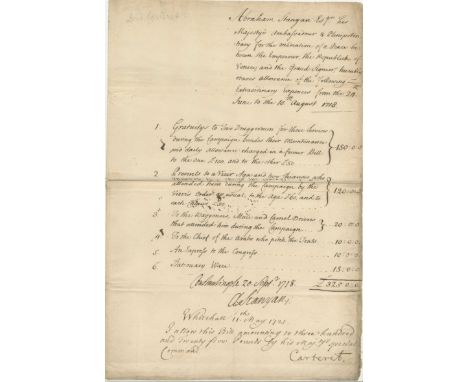 Abraham Stanyan Esqr. His
Majestys Ambassadour & Plenipoten-
tiary for the mediation of a Peace be-
tween the Emperour, the Republick of
Venice, and the Grand Signior humbly
craves allowance of the following
Extraordinary Expences from the 24th
June to the 10th August 1718.
1. Gratuitys to Two Druggermen for their Service
during the Campaign, besides their Maintenance
and daily allowance charged in a former Bill
to the one £100, and to the other £80 180:0:0
2. Presents to a Visir Aga and two Chiaouses who
attended him during the Campaign by the
Visir's Order to the Aga £60, and to
each £30 120:0:0
3. To the Waggoners, Mule and Camel Drivers
that attended him during the Campaign 20:0:0
4. To the Chief of the who pitch the Tents 10:0:0
5. An Express to the Congress 10:0:0
6. Stationary Ware 15:0:0
Constantinople 20 Septr. 1718. £325:0:0
A Stanyan.
Whitehall 11th May 1721.
I allow this Bill amounting to three hundred
and twenty five Pounds by his Majtys special
Command
Carteret.